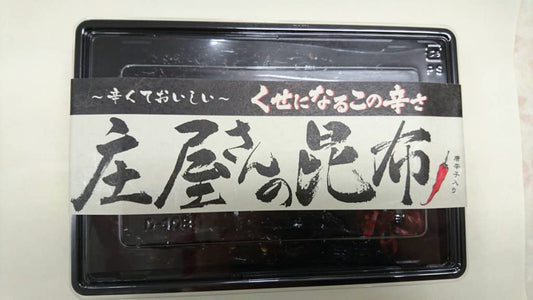 ～辛くておいしい～
くせになるこの辛さ
庄屋さんの昆布
唐辛子入り